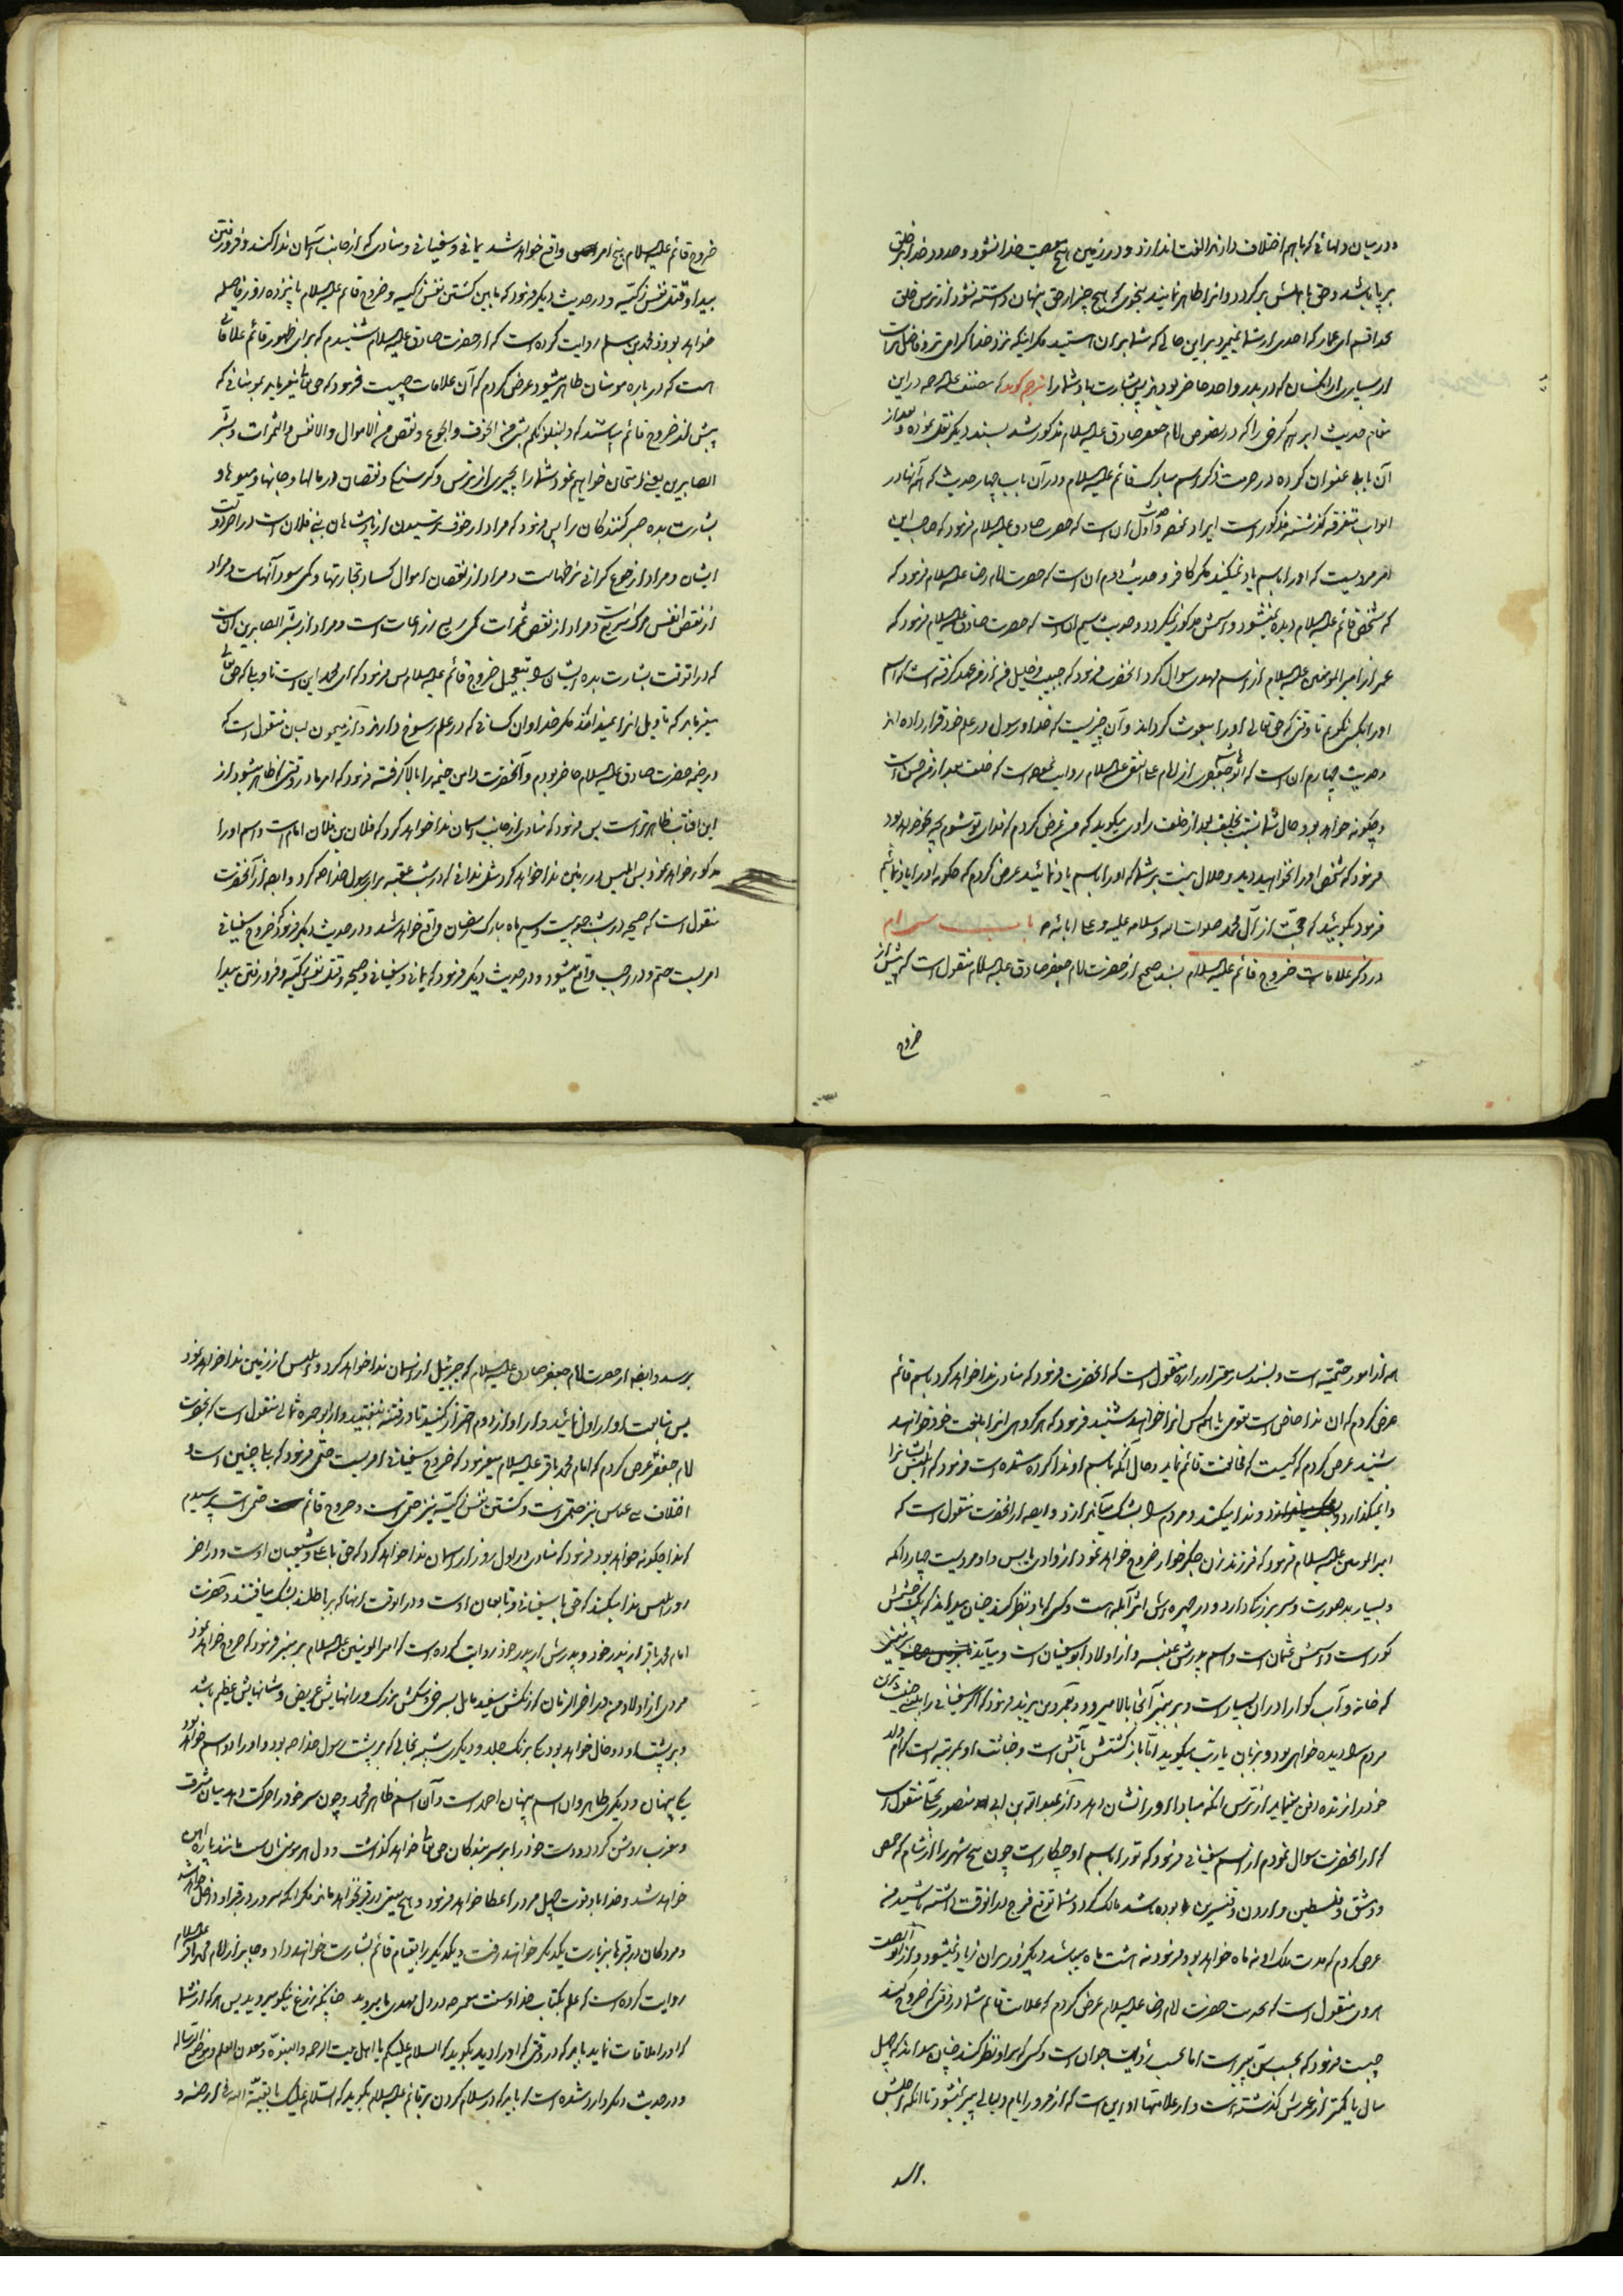 و در میان دلهائی که با هم اختلاف دارند الفت اندازد و در زمین هیچ معصیت خدا نشود و حدود خدا بر خلق
برپا باشد و حق با اهلش برگردد و انرا ظاهر نمایند بنحوی که هیچ چیز از حق پنهان داشته نشود از ترس خلق
بخدا قسم ای عمار که احدی از شما نمیرد بر این حالی که شما بر ان استید مگر اینکه نزد خدا گرامی تر و فاضل تر است
از بسیاری از انکسان که در بدر و احد حاضر بودند پس بشارت باد شما را مترجم کوید که مصنف علیه الرحمه در این
مقام حدیث ابراهیم کرخی را که در نصوص امام جعفر صادق علیه السلام مذکور شد بسند دیکر نقل نموده و بعد از
آن بابی عنوان کرده در حرمت ذکر اسم مبارک قائم علیه السلام و در آن باب چهار حدیث که آنها در
ابواب متفرقه گذشته مذکور است ایراد نموده حدیث اول آن است که حضرت صادق علیه السلام فرمود که صاحب این
امر مردیست که او را باسم یاد نمیکند مگر کافر و حدیث دوم ان است که حضرت امام رضا علیه السلام فرمود که
که شخص قائم علیه السلام دیده نمیشود و اسمش مذکور نمیگردد و حدیث سیم ان است که حضرت صادق علیه السلام فرمود که
عمر از امیر المؤمنین علیه السلام از اسم مهدی سوال کرد انحضرت فرمود که حبیب و خلیل من از من عهد گرفته است که اسم
او را بکس نگویم تا وقتی که حق تعالی او را مبعوث گرداند و آن چیزیست که خدا و رسول در علم خود قرار داده اند
و حدیث چهارم ان است که ابو هاشم جعفری از امام علی النقی علیه السلام روایت نموده است که خلف بعد از من حسن است
و چکونه خواهد بود حال شما نسبت بخلف بعد از خلف راوی میکوید که من عرض کردم که فدای تو شوم بچه نحو خواهد بود
فرمود که شخص او را نخواهید دید و حلال نیست بر شما که او را باسم یاد نمائید عرض کردم که چکونه او را یاد نمائیم
فرمود بکوئید که حجت از آل محمد صلوات الله و سلامه علیه و علی ابائه باب سی ام
در ذکر علامات خروج قائم علیه السلام بسند صحیح از حضرت امام جعفر صادق علیه السلام منقول است که پیش از
خروج
خروج قائم علیه السلام پنج امر واقع خواهد شد یمانی و سفیانی و منادی که از جانب آسمان ندا کند و فرو رفتن
بیدا و قتل نفس زکیه و در حدیث دیکر فرمود که مابین کشتن نفس زکیه و خروج قائم علیه السلام پانزده روز فاصله
خواهد بود و محمد بن مسلم روایت کرده است که از حضرت صادق علیه السلام شنیدم که برای ظهور قائم علاماتی
است که در باره مومنان ظاهر میشود عرض کردم که آن علامات چیست فرمود که حق تعالی میفرماید بمومنانی که
پیش از خروج قائم میباشند که ولنبلونکم بشئ من الخوف والجوع ونقص من الاموال والانفس والثمرات وبشر
الصابرین یعنی امتحان خواهم نمود شما را بچیزی از ترس و گرسنگی و نقصان در مالها و جانها و میوها و
بشارت بده صبر کنندگان را پس فرمود که مراد از خوف ترسیدن از پادشاهان بنی فلان است در اخر دولت
ایشان و مراد از جوع گرانی نرخهاست و مراد از نقصان اموال کساد تجارتها و کمی سود آنهاست و مراد
از نقص انفس مرگ سریع است و مراد از نقص ثمرات کمی ریع زراعات است و مراد از بشر الصابرین آن است
که در انوقت بشارت بده ایشان را بتعجیل خروج قائم علیه السلام پس فرمود که ای محمد این است تاویلی که حق تعالی
میفرماید که تاویل انرا نمیداند مگر خدا و ان کسانی که در علم رسوخ دارند و از میمون لبان منقول است که
در خیمه حضرت صادق علیه السلام حاضر بودم و آنحضرت دامن خیمه را بالا گرفته فرمود که امر ما در وقتی که ظاهر میشود از
این افتاب ظاهر تر است پس فرمود که منادی از جانب اسمان ندا خواهد کرد که فلان بن فلان امام است و اسم او را
مذکور خواهد نمود پس ابلیس در زمین ندا خواهد کرد مثل ندائی که در شب عقبه برای رسول خدا ص کرد و ایضا از آنحضرت
منقول است که صیحه در شب جمعه بیست و سیم ماه مبارک رمضان واقع خواهد شد و در حدیث دیکر فرمود که خروج سفیانی
امریست حتم و در رجب واقع میشود و در حدیث دیکر فرمود که یمانی و سفیانی و صیحه و قتل نفس زکیه و فرو رفتن بیدا
همه از امور حتمیه است و بسند بسیار معتبر از زراره منقول است که انحضرت فرمود که منادی ندا خواهد کرد باسم قائم
عرض کردم که ان ندا خاص است بقومی یا همه کس انرا خواهند شنید فرمود که هر گروهی انرا بلغت خود خواهند
شنید عرض کردم که کیست که مخالفت قائم نماید و حال آنکه باسم او ندا کرده شده است فرمود که ابلیس ایشانرا
وانمیگذارد و ندا میکند و مردم را بشک میاندازد و ایضا از انحضرت منقول است که
امیر المومنین علیه السلام فرمود که فرزند زن جگر خوار خروج خواهد نمود از وادی یابس و او مردیست چهار شانه
و بسیار بد صورت و سر بزرگ دارد و در چهره اش اثر آبله هست و کسی که باو نظر کند چنان میداند که یک چشمش
کور است و اسمش عثمان است و اسم پدرش عنبسه و از اولاد ابو سفیان است و میآید بزمینی
که خانه و آب گوارا در ان بسیار است و بر منبر آنجا بالا میرود و عمر بن یزید فرمود که اگر سفیانی را ببینی خبیث ترین
مردم را دیده خواهی بود و بزبان یا رب میکوید اما بازگشتش بآتش است و خباثت او بمرتبه ایست که ام ولد
خود را زنده دفن مینماید از ترس انکه مبادا او را نشان دهد و از عبد الله بن ابی منصور بجلی منقول است
که از انحضرت سوال نمودم از اسم سفیانی فرمود که تو را باسم او چکار است چون پنج شهر را از شام که حمص
و دمشق و فلسطین و اردن و قنسرین بوده باشد مالک گردد شما توقع فرج در انوقت داشته باشید من
عرض کردم که مدت ملک او نه ماه خواهد بود فرمود نه هشت ماه میباشد و یکروز بر ان زیاد نمیشود و از ابو الصلت
هروی منقول است که بخدمت حضرت امام رضا علیه السلام عرض کردم که علامت قائم شما در وقتی که خروج کند
چیست فرمود که بحسب سن پیر است اما بحسب رؤیت جوان است و کسی که باو نظر کند چنان میداند که چهل
سال یا کمتر از عمرش گذشته است و از علامتهای او این است که از مرور ایام و لیالی پیر نمیشود تا انکه اجلش
برسد
برسد و ایضا از حضرت امام جعفر صادق علیه السلام که جبرئیل از اسمان ندا خواهد کرد و ابلیس از زمین ندا خواهد نمود
پس متابعت اواز اول نمائید و از اواز دوم احتراز کنید تا در فتنه نیفتید و از ابو حمزه ثمالی منقول است که بحضرت
امام جعفر عرض کردم که امام محمد باقر علیه السلام میفرمود که خروج سفیانی امریست حتمی فرمود که بلی چنین است و
اختلاف بنی عباس نیز حتمی است و کشتن نفس زکیه نیز حتمی است و خروج قائم حتمی است پرسیدم
که ندا چکونه خواهد بود فرمود که منادی در اول روز از اسمان ندا خواهد کرد که حق با علی و شیعیان اوست و در اخر
روز ابلیس ندا میکند که حق با سفیانی و تابعان اوست و در انوقت انها که بر باطلند بشک میافتند و حضرت
امام محمد باقر از پدر خود و پدرش از پدر خود روایت کرده است که امیر المومنین علیه السلام بر منبر فرمود که خروج خواهد نمود
مردی از اولاد من در اخر الزمان که رنگش سفید مایل بسرخی و شکمش بزرگ و رانهایش عریض و شانهایش عظیم باشد
و بر پشت او دو خال خواهد بود یکی برنگ جلد و دیگری شبیه بخالی که بر پشت رسول خدا ص بود و او را دو اسم خواهد بود
یکی پنهان و دیگری ظاهر و ان اسم پنهان احمد است و آن اسم ظاهر محمد و چون سر خود را حرکت دهد میان مشرق
و مغرب روشن گردد و دست خود را بر سر بندگان حق تعالی خواهد گذاشت و دل هر مومنی از ان مانند پاره آهن
خواهد شد و خدا باو قوت چهل مرد را عطا خواهد فرمود و هیچ میتی در قبر نخواهد ماند مگر انکه سرور در قبر او داخل خواهد شد
و مردگان در قبرها بزیارت یکدیکر خواهند رفت و یکدیگر را بقیام قائم بشارت خواهند داد و جابر از امام محمد باقر علیه السلام
روایت کرده است که علم بکتاب خدا و سنت پیغمبر ص در دل مهدی ما میروید چنانچه زرع نیکو میروید پس هر که از شما
که او را ملاقات نماید باید که در وقتی که او را دید بکوید که السلام علیکم یا اهل بیت الرحمة والنبوة ومعدن العلم وموضع الرسالة
و در حدیث دیکر وارد شده است که باید که در سلام کردن بر قائم علیه السلام بکوید که السلام علیک یا بقیة الله فی ارضه و